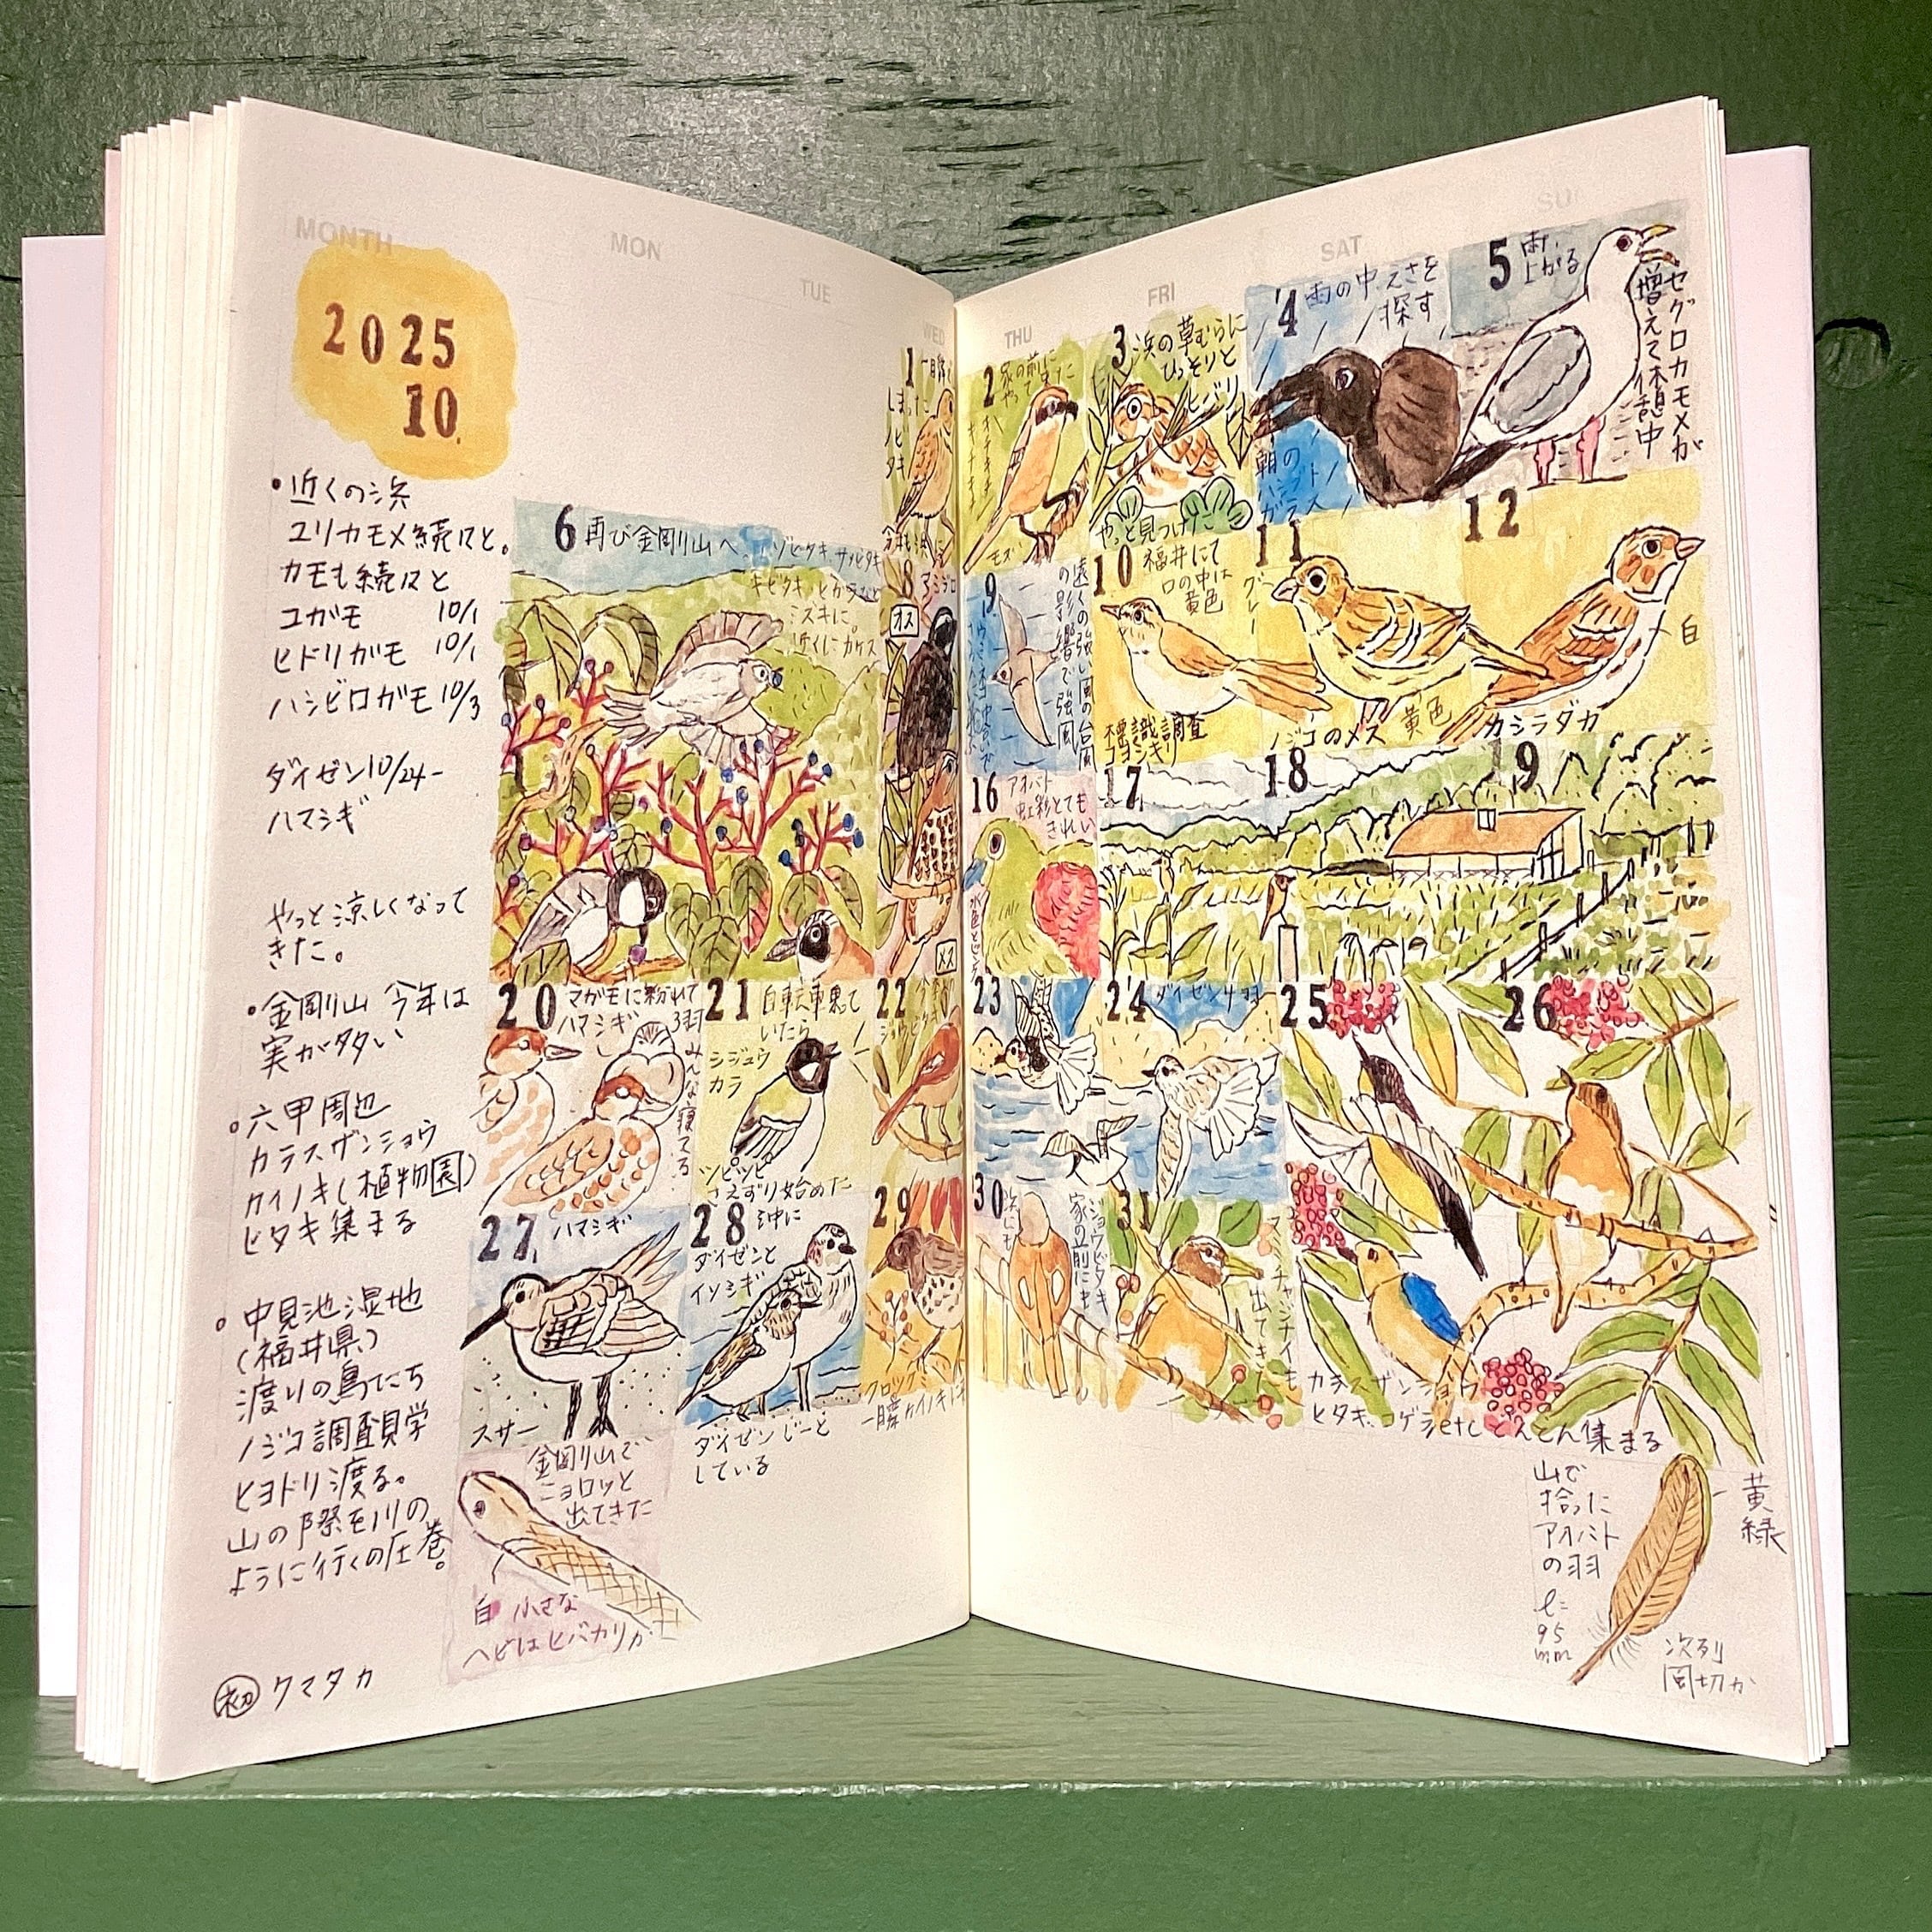 MONTH
MON
TUE
WED
THU
FRI
SAT
SU
2025
10
・近くの浜
ユリカモメ続々と。
カモも続々と
コガモ 10/1
ヒドリガモ 10/1
ハシビロガモ 10/3
ダイゼン10/24-
ハマシギ
やっと涼しくなって
きた。
・金剛山 今年は
実が多い
・六甲周辺
カラスザンショウ
カイノキ(植物園)
ヒタキ集まる
・中見池湿地
(福井県)
渡りの鳥たち
ノジコ調査見学
ヒヨドリ渡る。
山の際を川の
ように行くの圧巻。
初 クマタカ
1
2
家の前に
やってきた
モズ
3
浜の草むらに
ひっそりと
ヒバリ
やっと見つけたこ
4
雨の中えさを
探す
朝の
ハシブト
ガラス
5
雨
上がる
セグロカモメが
増えて休憩中
6 再び金剛山へ。
キビタキ
ミズキに。
近くにカケス
8
オス
メス
9
遠くの強い風の台風
の影響で強風
10 福井にて
口の中は
黄色
標識調査
コヨシキリ
11
グレー
ノジコのメス 黄色
12
白
カシラダカ
16
アオバト
虹彩とても
きれい
17
18
19
20 マガモに紛れて
ハマシギ 3羽
みんな寝てる
21 自転車乗て
いたら
シジュウ
カラ
ツピツピ
さえずり始めた
22
ジョウビタキ
23
24 ダイゼン4羽
25
26
カラスザンショウ
ヒタキ、コゲラetc どんどん集まる
27 ハマシギ
スサー
28 沖に
ダイゼンと
イソシギ
ダイゼン じーと
している
29
クロツグミ
一瞬カイノキに
30
ジョウビタキ
家の前に
31
マミチャジナイも
出てきた
金剛山で
ニョロッと
出てきた
白 小さな
ヘビはヒバカリか
山で
拾った
アオバト
の羽
l=
95
mm
黄
緑
次列
風切か